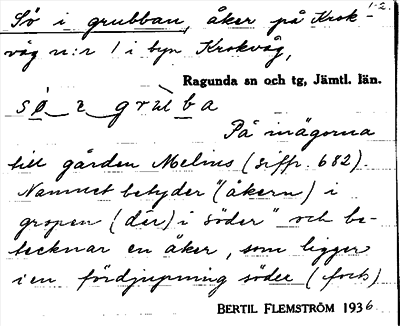 1-2.
Sö i grubban, åker på Krok-
våg n:r 1 i byn Krokvåg,
Ragunda sn och tg, Jämtl. län.
På inägorna
till gården Melins (siffr. 682).
Namnet betyder "(åkern) i
gropen (där) i söder" och be-
tecknar en åker, som ligger
i en fördjupning söder (forts)
BERTIL FLEMSTRÖM 1936.